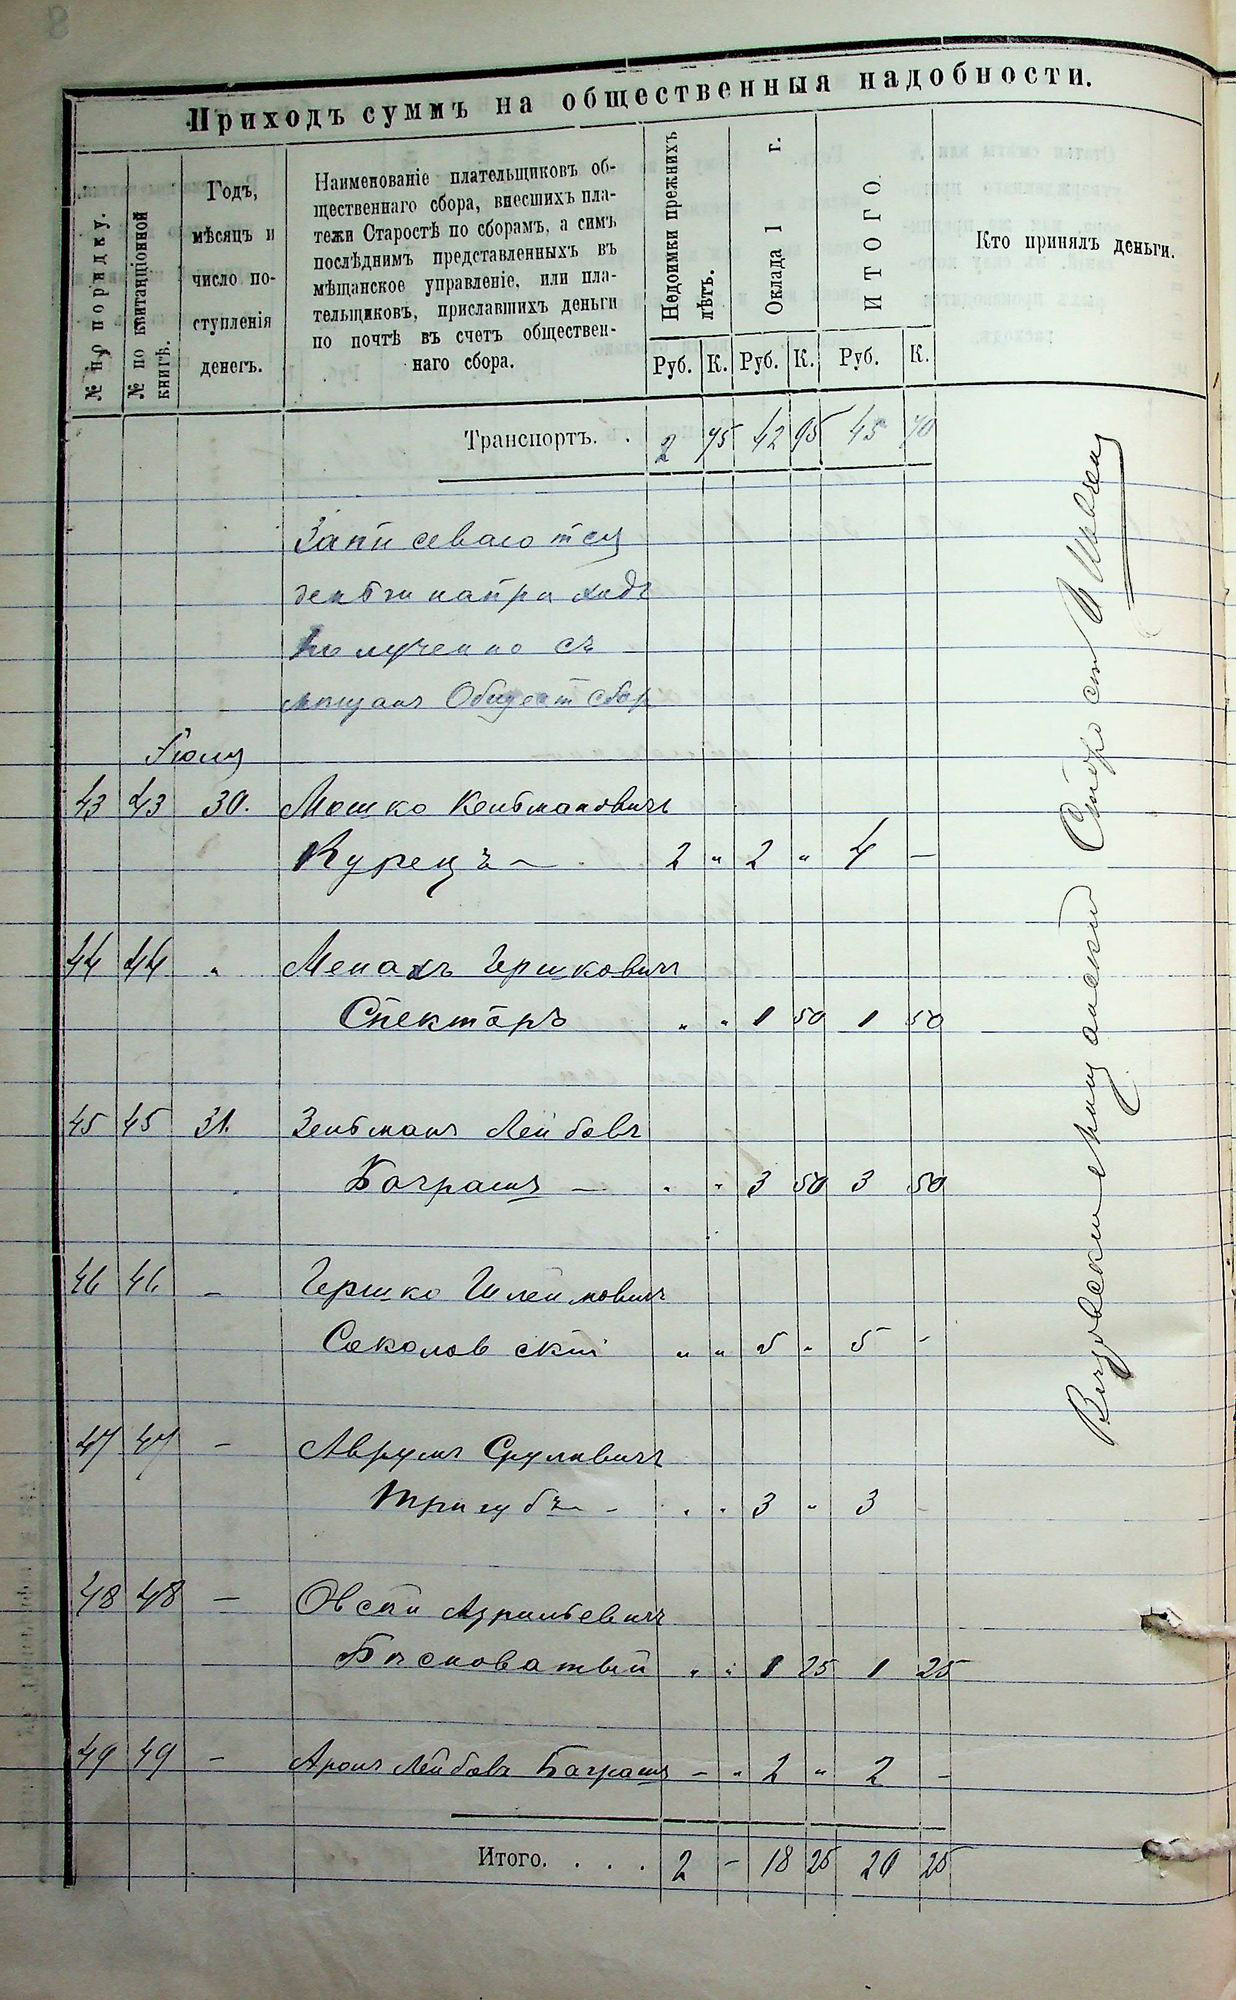 Приходъ суммъ на общественныя надобности.
№ по порядку.
№ по квитанціонной книгѣ.
Годъ,
мѣсяцъ и
число по-
ступленія
денегъ.
Наименованіе плательщиковъ об-
щественнаго сбора, внесшихъ пла-
тежи Старостѣ по сборамъ, а симъ
послѣднимъ представленныхъ въ
мѣщанское управленіе, или пла-
тельщиковъ, приславшихъ деньги
по почтѣ въ счетъ обществен-
наго сбора.
Недоимки прежнихъ лѣтъ.
Оклада 1 г.
ИТОГО.
Кто принялъ деньги.
Руб. К. Руб. К. Руб. К.
Транспортъ. . 2 75 42 95 45 70
Записеваютея
полученно съ
мещанъ Общест сбор
Іюля
43 43 30. Мошко Кельмановичъ
Курецъ — 2 " 2 " 4 —
44 44 " Гершковичъ
Спекторъ " " 1 50 1 50
45 45 31. Зельманъ Лейбовъ
Баграшъ — " " 3 50 3 50
46 46 — Гершко Шлеймовичъ
Соколовскій " " 5 " 5 -
47 47 — Аврумъ Сруливичъ
Тригубъ — " " 3 " 3 -
48 48 — Овсѣй Азрильевичъ
Бѣсноватый " " 1 25 1 25
49 49 — Аронъ Лейбовъ Баграшъ — " 2 " 2 —
Итого. . . . 2 — 18 25 20 25
Старост